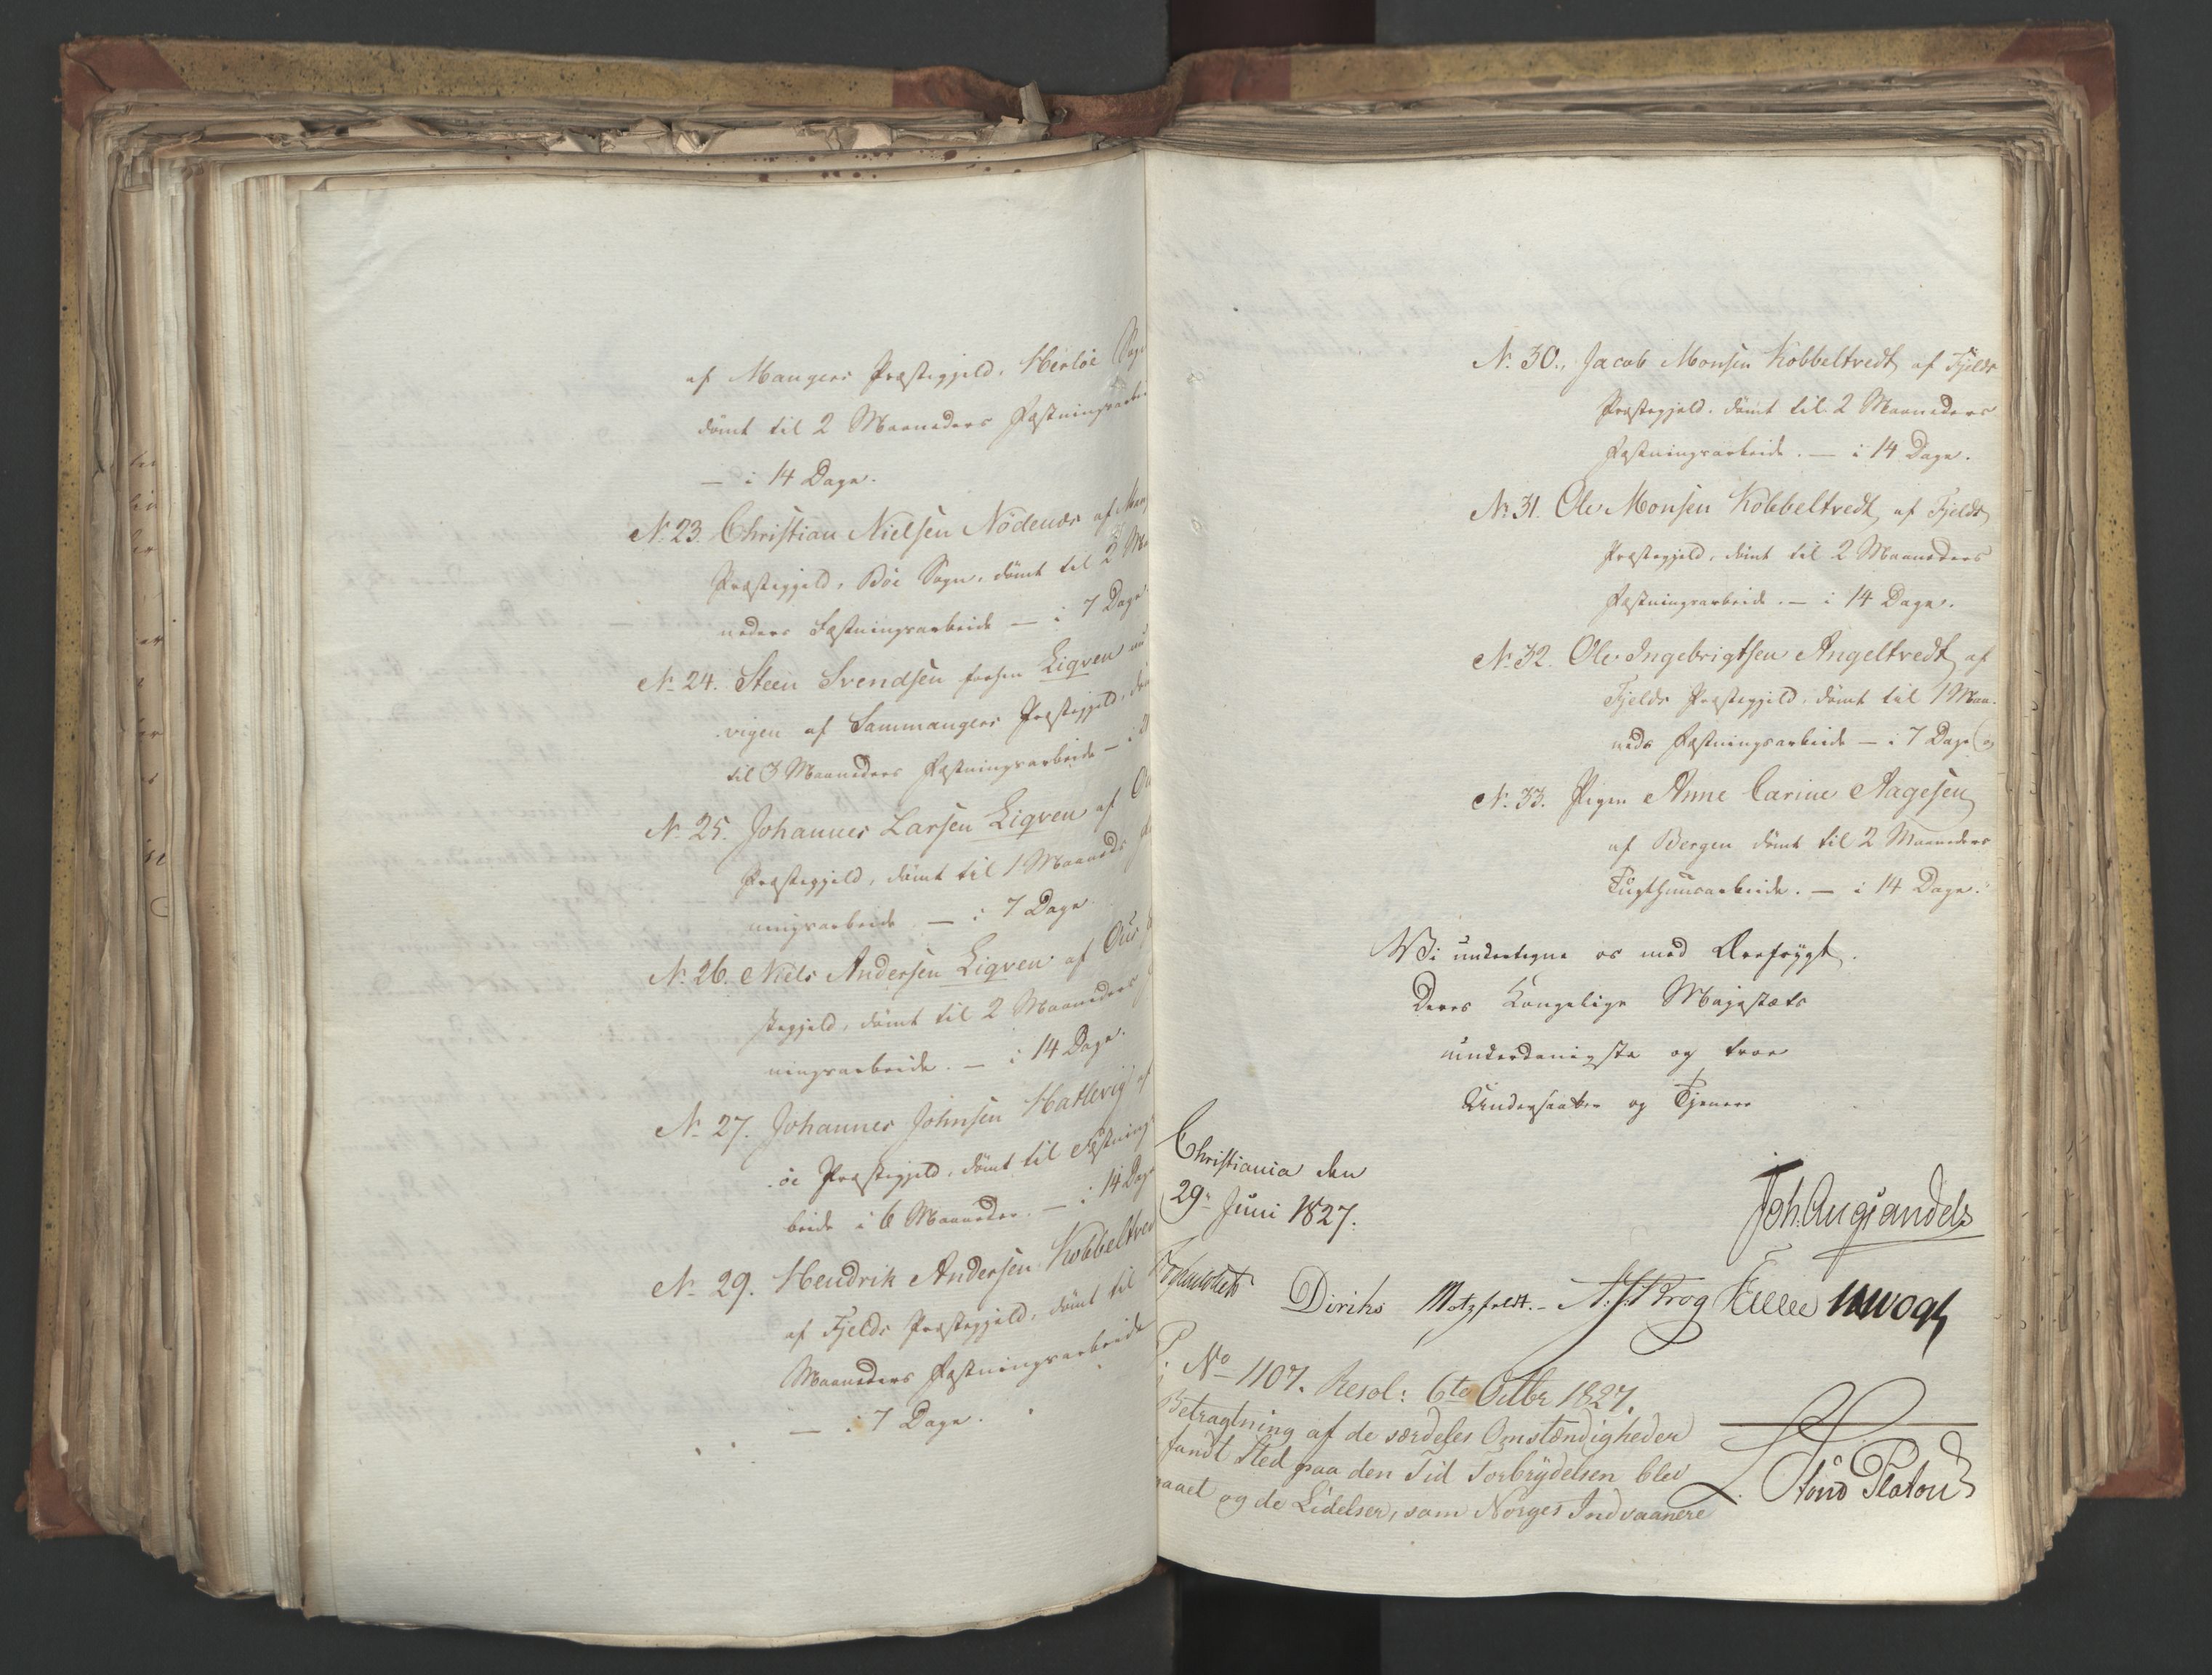 af Mangers Præstegjeld, Herløe Sogn
dömt til 2 Maaneders Fæstningsarbei
— i 14 Dage.
No 23. Christian Nielsen Nödenæs af Man
Præstegjeld, Böe Sogn, dömt til 2 Ma
neders Fæstningsarbeide — i 7 Dage.
No 24. Steen Svendsen forhen Liqven nu
vigen af Sammangers Præstegjeld, dö
til 3 Maaneders Fæstningsarbeide — i 2
No 25. Johannes Larsen Liqven af Ou
Præstegjeld, dömt til 1 Maaneds Fæ
ningsarbeide. — i 7 Dage.
No 26. Niels Andersen Liqven af Ous
stegjeld, dömt til 2 Maaneders
ningsarbeide. — i 14 Dage.
No 27. Johannes Johnsen Hatlevig af
öe Præstegjeld, dömt til Fæstnings
beide i 6 Maaneder. — i 14 Dage
No 29. Hendrik Andersen Kobbeltved
af Fjelds Præstegjeld, dömt til
Maaneders Fæstningsarbeide
— i 7 Dage.
No 30. Jacob Monsen Kobbeltvedt af Fjelds
Præstegjeld, dömt til 2 Maaneders
Fæstningsarbeide. — i 14 Dage.
No 31. Ole Monsen Kobbeltvedt af Fjelds
Præstegjeld, dömt til 2 Maaneders
Fæstningsarbeide. — i 14 Dage.
No 32. Ole Ingebrigtsen Angeltvedt af
Fjelds Præstegjeld, dömt til 1 Maa-
neds Fæstningsarbeide — i 7 Dage og
No 33. Pigen Anne Carine Aagesen
af Bergen dömt til 2 Maaneders
Tugthuusarbeide. — i 14 Dage."
Vi undertegne os med Ærefrygt.
Deres Kongelige Majestæts
underdanigste og troe
Undersaatter og Tjenere
Christiania den
29de Juni 1827.
Joh. Aug Sandels
Diriks Motzfeldt. Krog JHVogt
No 1107. Resol: 6te Octbr 1827.
Betragtning af de særdeles Omstændigheder
fandt Sted paa den Tid Forbrydelsen blev
gaaet og de Lidelser, som Norges Indvaanere
L. Stoud Platou